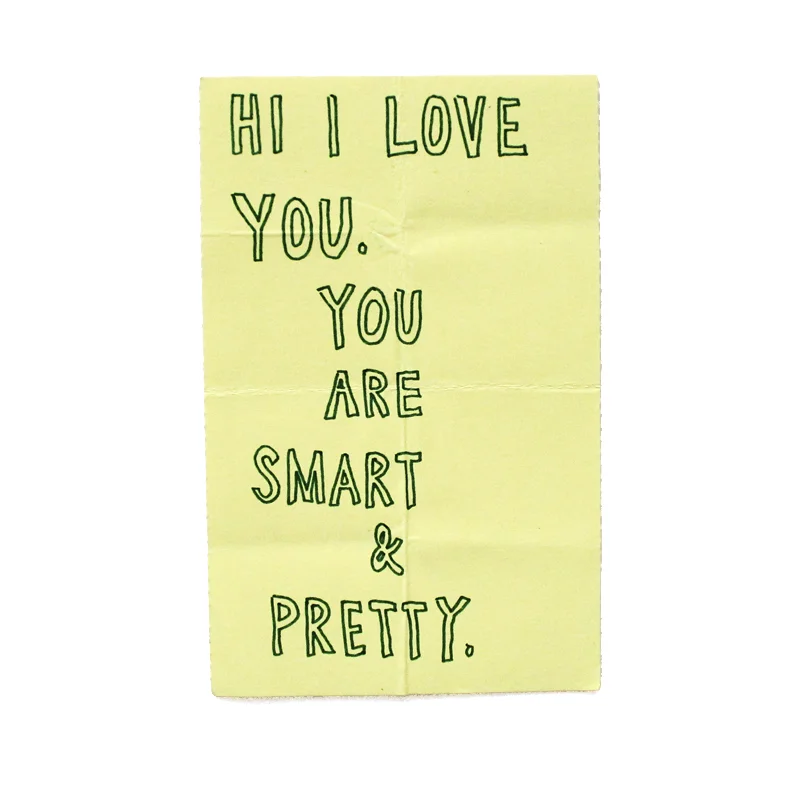 HI I LOVE
YOU.
YOU
ARE
SMART
&
PRETTY.